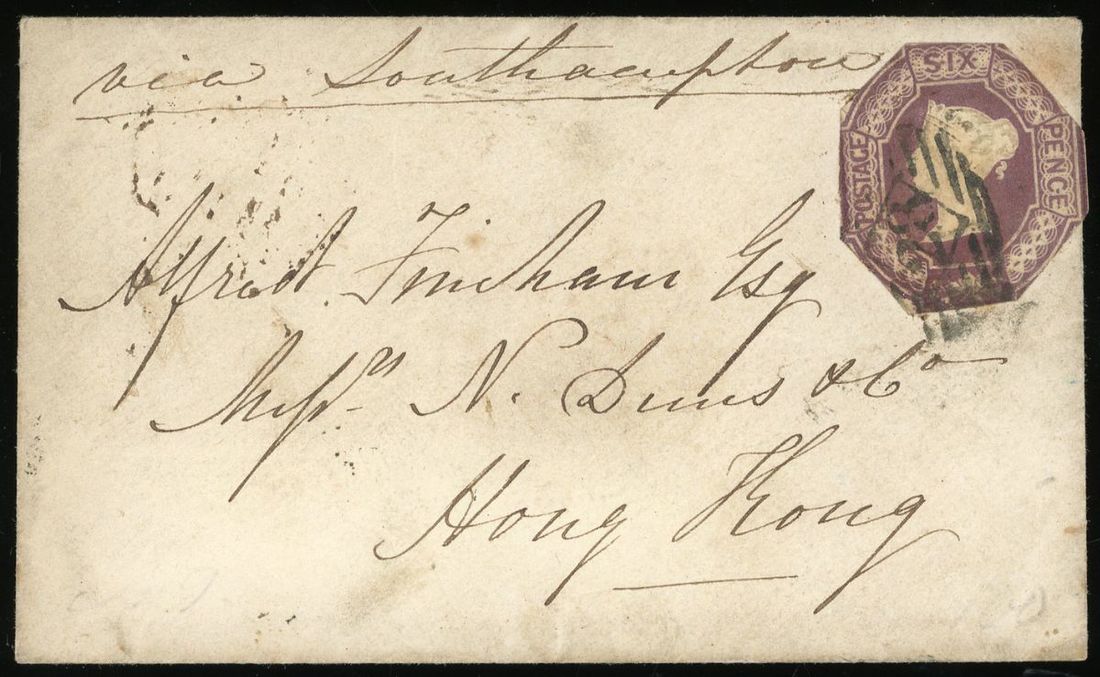 via Southampton
POSTAGE SIX PENCE
Alfred Fincham Esq
Messrs N. Duus & Co
Hong Kong